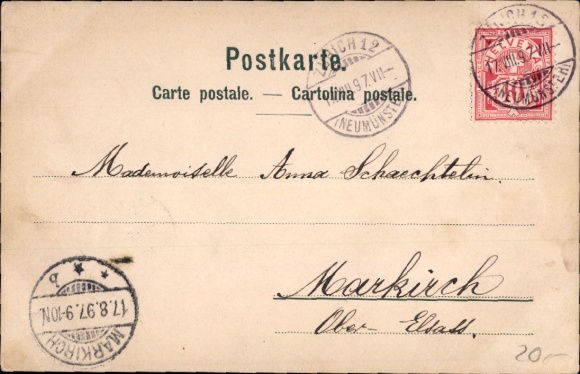 Postkarte.
Carte postale. — Cartolina postale.
ZÜRICH 12
17.VIII.97.VII—
(NEUMÜNSTER)
HELVETIA
10
17.VIII.97.VII—
(NEUMÜNSTER)
Mademoiselle Anna Schaechtelin
Markirch
Ober Elsass.
17.8.97.9-10N.
MARKIRCH
20.-